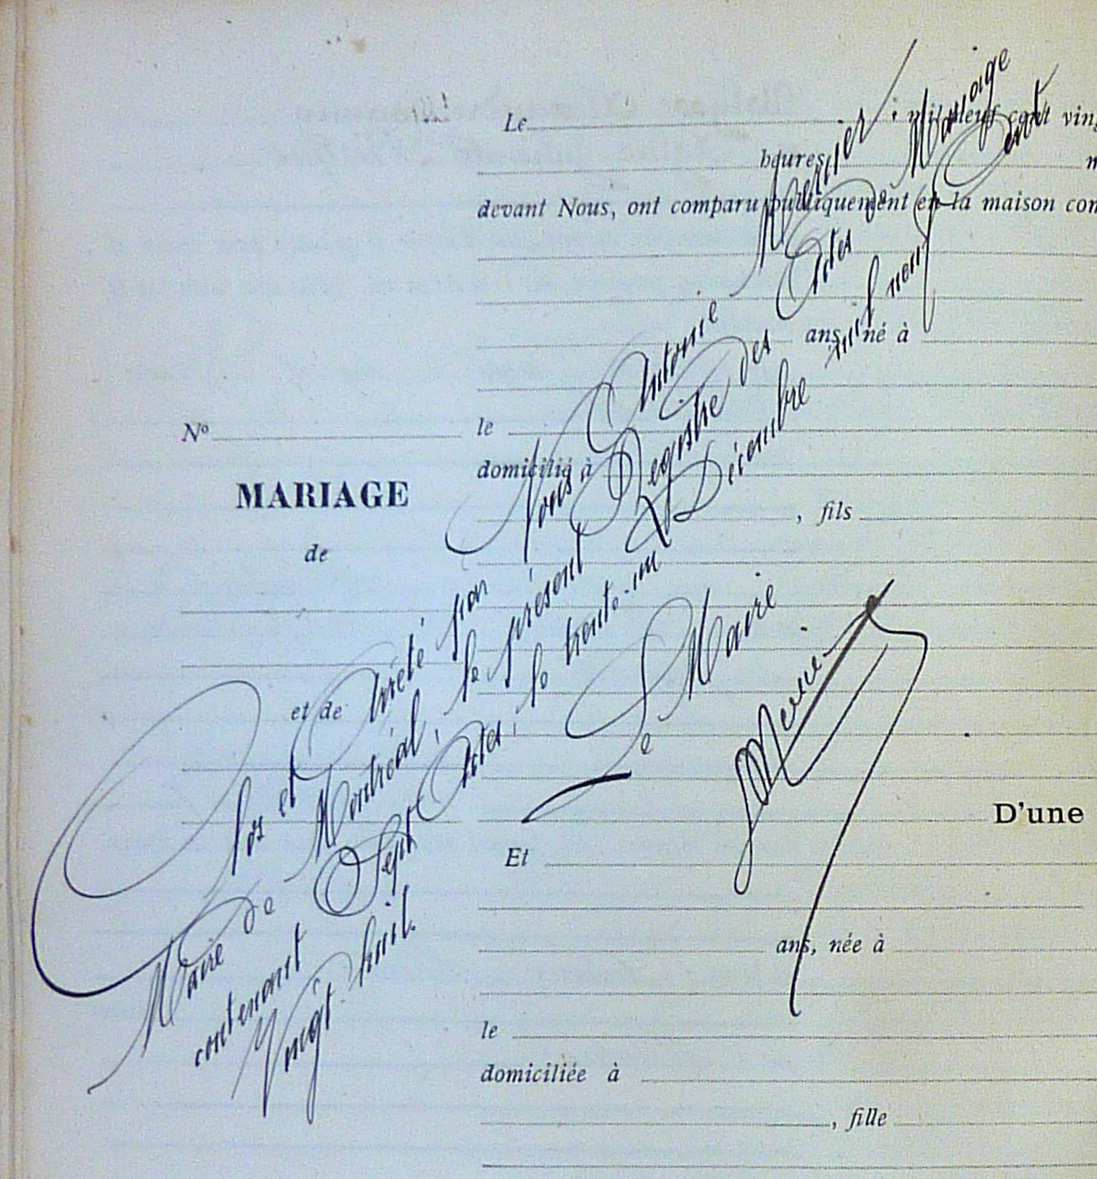 Le , mil neuf cent ving
heures
devant Nous, ont comparu publiquement en la maison com
ans, né à
N°
le
domicilié à
MARIAGE
, fils
de
et de
D'une
Et
ans, née à
le
domiciliée à
, fille
Clos et Arrêté par Nous Antonie Mercier
Maire de Montréal, le présent Registre des Actes de Mariage
contenant Sept Actes, le trente-un Décembre mil neuf Cent
Vingt huit.
Le Maire